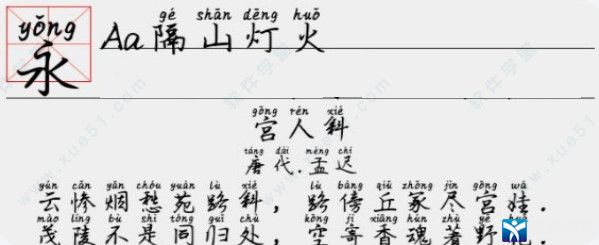 yǒng
永
gé shān dēng huǒ
Aa隔山灯火
gōng rén xié
宫人斜
táng dài mèng chí
唐代.孟迟
yún cǎn yān chóu yuàn lù xié lù bàng qiū zhǒng jìn gōng wá
云惨烟愁苑路斜,路傍丘冢尽宫娃.
mào líng bù shì tóng guī chù kōng jì xiāng hún zhuó yě
茂陵不是同归处,空寄香魂著野
www.xue51.com
软件学堂